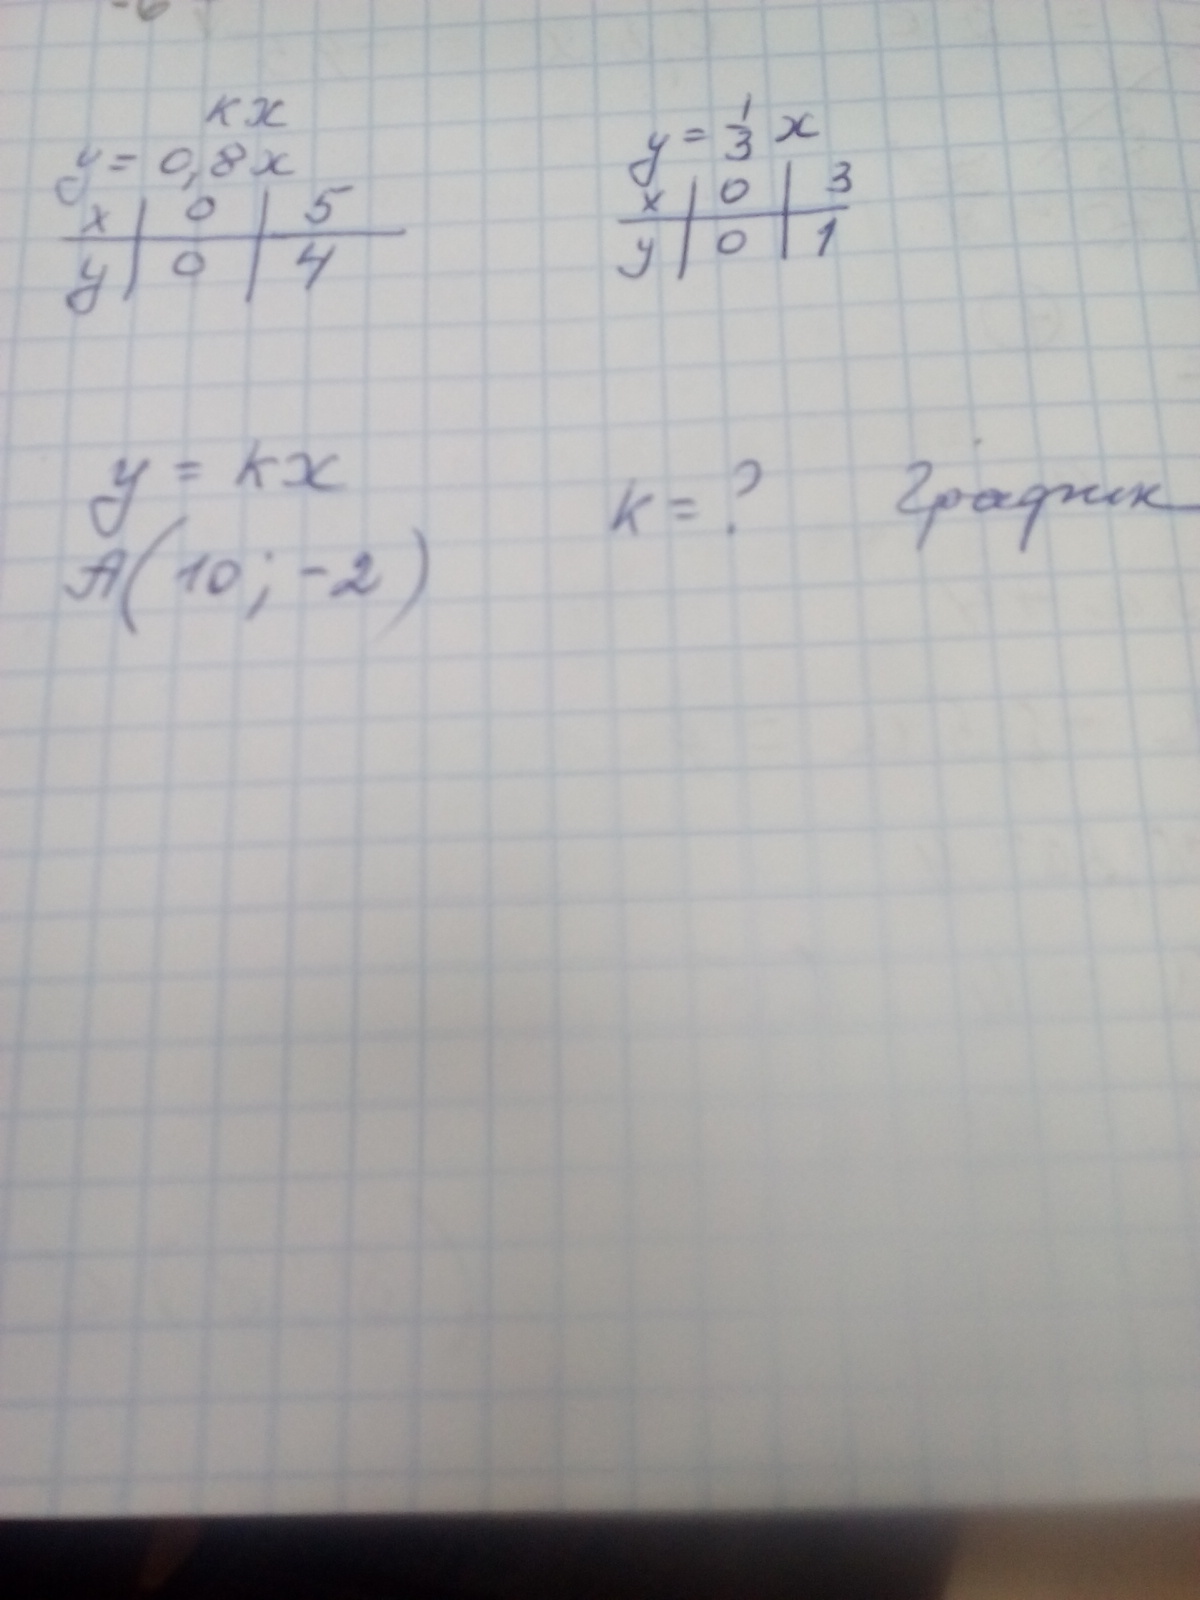 -6
kx
y = 0,8x
x | 0 | 5
y | 0 | 4
y = 1/3 x
x | 0 | 3
y | 0 | 1
y = kx
k = ? График
A(10; -2)